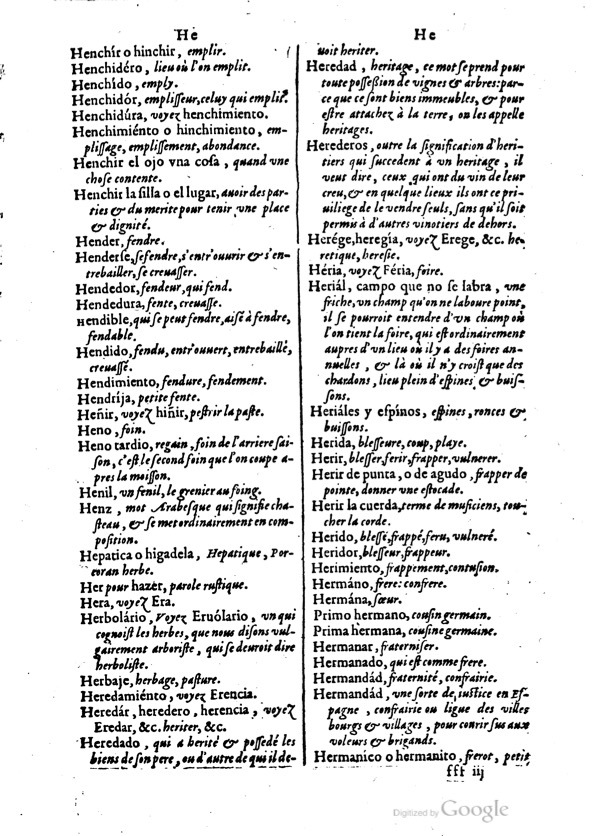 He
Henchír o hinchir, emplir.
Henchidéro, lieu où l'on emplit.
Henchído, emply.
Henchidór, emplisseur, celuy qui emplit.
Henchidúra, voyez henchimiento.
Henchimiénto o hinchimiento, em-
plissage, emplissement, abondance.
Henchir el ojo vna cosa, quand vne
chose contente.
Henchir la silla o el lugar, auoir des par-
ties & du merite pour tenir vne place
& dignité.
Hender, fendre.
Henderse, se fendre, s'entr'ouurir & s'en-
trebailler, se creuasser.
Hendedor, fendeur, qui fend.
Hendedura, fente, creuasse.
Hendible, qui se peut fendre, aisé à fendre,
fendable.
Hendido, fendu, entr'ouuert, entrebaillé,
creuassé.
Hendimiento, fendure, fendement.
Hendríja, petite fente.
Heñir, voyez hiñir, pestrir la paste.
Heno, foin.
Heno tardio, regain, foin de l'arriere sai-
son, c'est le second foin que l'on coupe a-
pres la moisson.
Henil, vn fenil, le grenier au foing.
Henz, mot Arabesque qui signifie cha-
steau, & se met ordinairement en com-
position.
Hepatica o higadela, Hepatique, Por-
coran herbe.
Her por hazer, parole rustique.
Hera, voyez Era.
Herbolário, Voyez Eruólario, vn qui
cognoist les herbes, que nous disons vul-
gairement arboriste, qui se deuroit dire
herboliste.
Herbaje, herbage, pasture.
Heredamiénto, voyez Erencia.
Heredár, heredero, herencia, voyez
Eredar, &c. heriter, &c.
Heredado, qui a herité & possedé les
biens de son pere, ou d'autre de qui il de-
He
uoit heriter.
Heredad, heritage, ce mot se prend pour
toute possession de vignes & arbres: par-
ce que ce sont biens immeubles, & pour
estre attachez à la terre, on les appelle
heritages.
Herederos, outre la signification d'heri-
tiers qui succedent à vn heritage, il
veut dire, ceux qui ont du vin de leur
creu, & en quelque lieux ils ont ce pri-
uiliege de le vendre seuls, sans qu'il soit
permis à d'autres vinotiers de dehors.
Herége, heregía, voyez Erege, &c. he-
retique, heresie.
Héria, voyez Féria, foire.
Heriál, campo que no se labra, vne
friche, vn champ qu'on ne laboure point,
il se pourroit entendre d'vn champ où
l'on tient la foire, qui est ordinairement
aupres d'vn lieu où il y a des foires an-
nuelles, & là où il n'y croist que des
chardons, lieu plein d'espines & buis-
sons.
Heriáles y espínos, espines, ronces &
buissons.
Herida, blesseure, coup, playe.
Herir, blesser, ferir, frapper, vulnerer.
Herir de punta, o de agudo, frapper de
pointe, donner vne estocade.
Herir la cuerda, terme de musiciens, tou-
cher la corde.
Herido, blessé, frappé, feru, vulneré.
Heridor, blesseur, frappeur.
Herimiento, frappement, contusion.
Hermáno, frere: confrere.
Hermána, sœur.
Primo hermano, cousin germain.
Prima hermana, cousine germaine.
Hermanar, fraterniser.
Hermanado, qui est comme frere.
Hermandád, fraternité, confrairie.
Hermandád, vne sorte de iustice en Es-
pagne, confrairie ou ligue des villes
bourgs & villages, pour courir sus aux
voleurs & brigands.
Hermanico o hermanito, frerot, petit
fff iij
Digitized by Google